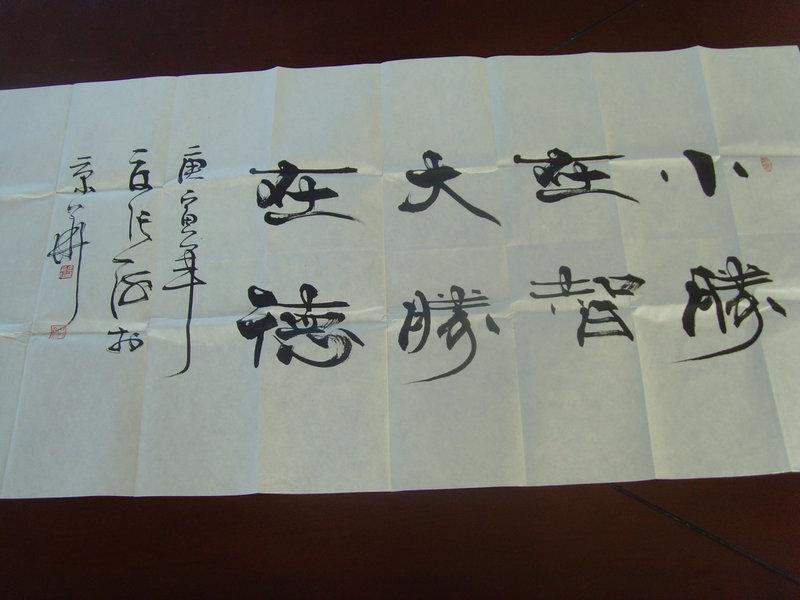 小勝
在智
大勝
在德
庚寅年
京華